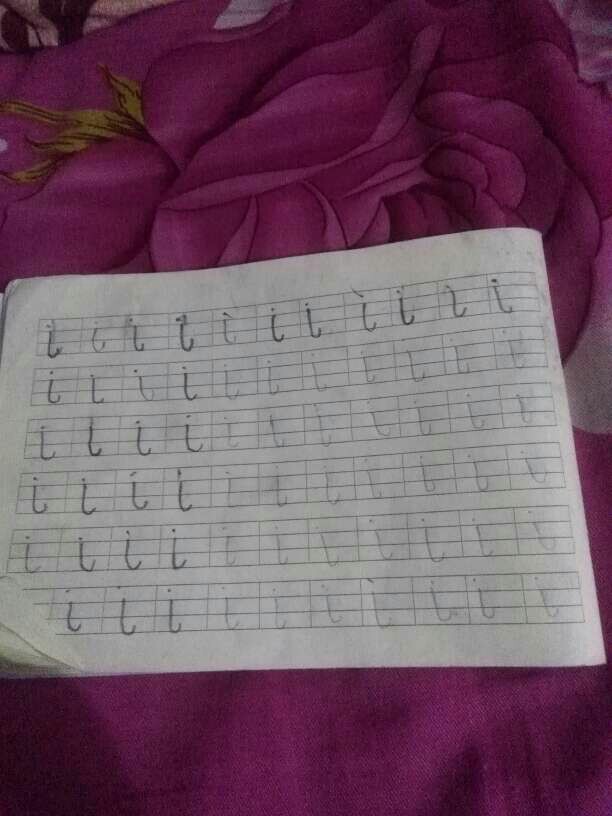 i i i i i i i i i i i
i i i i i i i i i i i
i i i i i i i i i i i
i i i i i i i i i i i
i i i i i i i i i i i
i i i i i i i i i i